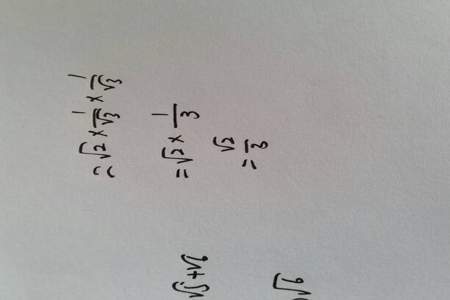 = √2 × 1/√3 × 1/√3
= √2 × 1/3
= √2/3